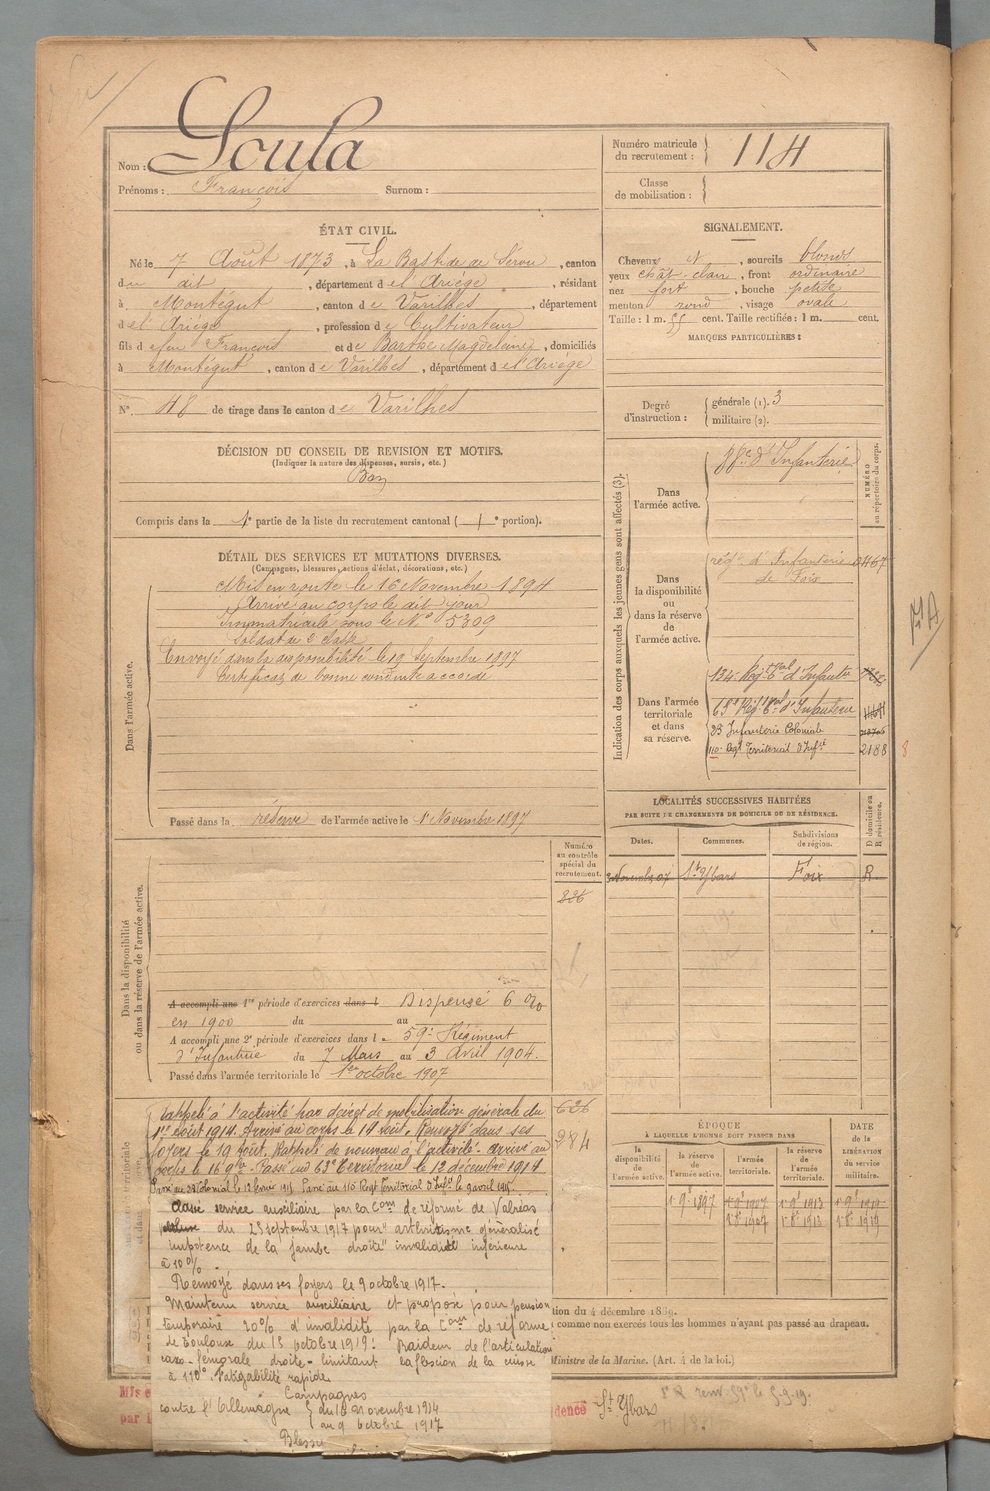 Nom : Soula
Prénoms : François Surnom :
Numéro matricule du recrutement : 114
Classe de mobilisation :
ÉTAT CIVIL.
Né le 7 Août 1873, à La Bastide de Sérou, canton
du dit, département de l'Ariège, résidant
à Montégut, canton de Varilhes, département
de l'Ariège, profession de Cultivateur
fils de feu François et de Barthe Magdeleine, domiciliés
à Montégut, canton de Varilhes, département de l'Ariège
N°. 48 de tirage dans le canton de Varilhes
SIGNALEMENT.
Cheveux et, sourcils blonds
yeux chât-clair, front ordinaire
nez fort, bouche petite
menton rond, visage ovale
Taille : 1 m. 55 cent. Taille rectifiée : 1 m. cent.
MARQUES PARTICULIÈRES :
Degré d'instruction : générale (1). 3
militaire (2).
DÉCISION DU CONSEIL DE REVISION ET MOTIFS.
(Indiquer la nature des dispenses, sursis, etc.)
Bon
Compris dans la 1e partie de la liste du recrutement cantonal ( 1e portion).
DÉTAIL DES SERVICES ET MUTATIONS DIVERSES.
(Campagnes, blessures, actions d'éclat, décorations, etc.)
Dans l'armée active.
Mis en route le 16 Novembre 1894
Arrivé au corps le dit jour
Immatriculé sous le N° 5309
Soldat de 2e classe
Envoyé dans la disponibilité le 19 Septembre 1897
Certificat de bonne conduite accordé
Passé dans la réserve de l'armée active le 1er Novembre 1897
Indication des corps auxquels les jeunes gens sont affectés (3).
NUMÉRO au répertoire du corps.
Dans l'armée active.
d'Infanterie
Dans la disponibilité ou dans la réserve de l'armée active.
régt d'Infanterie
de Foix
Dans l'armée territoriale et dans sa réserve.
134e Régt tal d'Infantie
63e Rég. tal d'Infanterie
23 Infanterie Coloniale
110e Regt Territorial d'Inft 2188
8
LOCALITÉS SUCCESSIVES HABITÉES
PAR SUITE DE CHANGEMENTS DE DOMICILE OU DE RÉSIDENCE.
Dates. Communes. Subdivisions de région. D domicile ou R résidence.
3 Novembre 07 St Ybars Foix R.
Dans la disponibilité ou dans la réserve de l'armée active.
Numéro au contrôle spécial du recrutement.
336
A accompli une 1re période d'exercices dans l Dispensé
en 1900 du au
A accompli une 2e période d'exercices dans l e 59e Régiment
d'Infanterie du 7 Mars au 3 Avril 1904.
Passé dans l'armée territoriale le 1er octobre 1907
626
984
Rappelé à l'activité par décret de mobilisation générale du
1er août 1914. Arrivé au corps le 14 août. Renvoyé dans ses
foyers le 19 août. Rappelé de nouveau à l'activité. arrivé au
corps le 16 9bre. Passé au 63e Territorial le 12 décembre 1914
Classé service auxiliaire par la Con de réforme de Valréas
du 23 septembre 1917 pour "arthritisme généralisé
impotence de la jambe droite" invalidité inférieure
à 10%.
Renvoyé dans ses foyers le 9 octobre 1917.
Maintenu service auxiliaire et proposé pour pension
temporaire 20% d'invalidité par la Con de réforme
de Toulouse du 15 octobre 1919. Raideur de l'articulation
coxo-fémorale droite - limitant la flexion de la cuisse
à 110°. Fatigabilité rapide
Campagnes
contre l'Allemagne du 16 novembre 1914
au 9 octobre 1917
ÉPOQUE
À LAQUELLE L'HOMME DOIT PASSER DANS
la disponibilité de l'armée active. la réserve de l'armée active. l'armée territoriale. la réserve de l'armée territoriale.
DATE de la LIBÉRATION du service militaire.
1er 9. 1897
1er 8bre 1907 1er 8bre 1913 1er 8bre 1919
tion du 4 décembre 1889.
comme non exercés tous les hommes n'ayant pas passé au drapeau.
Ministre de la Marine. (Art. 4 de la loi.)
St Ybars